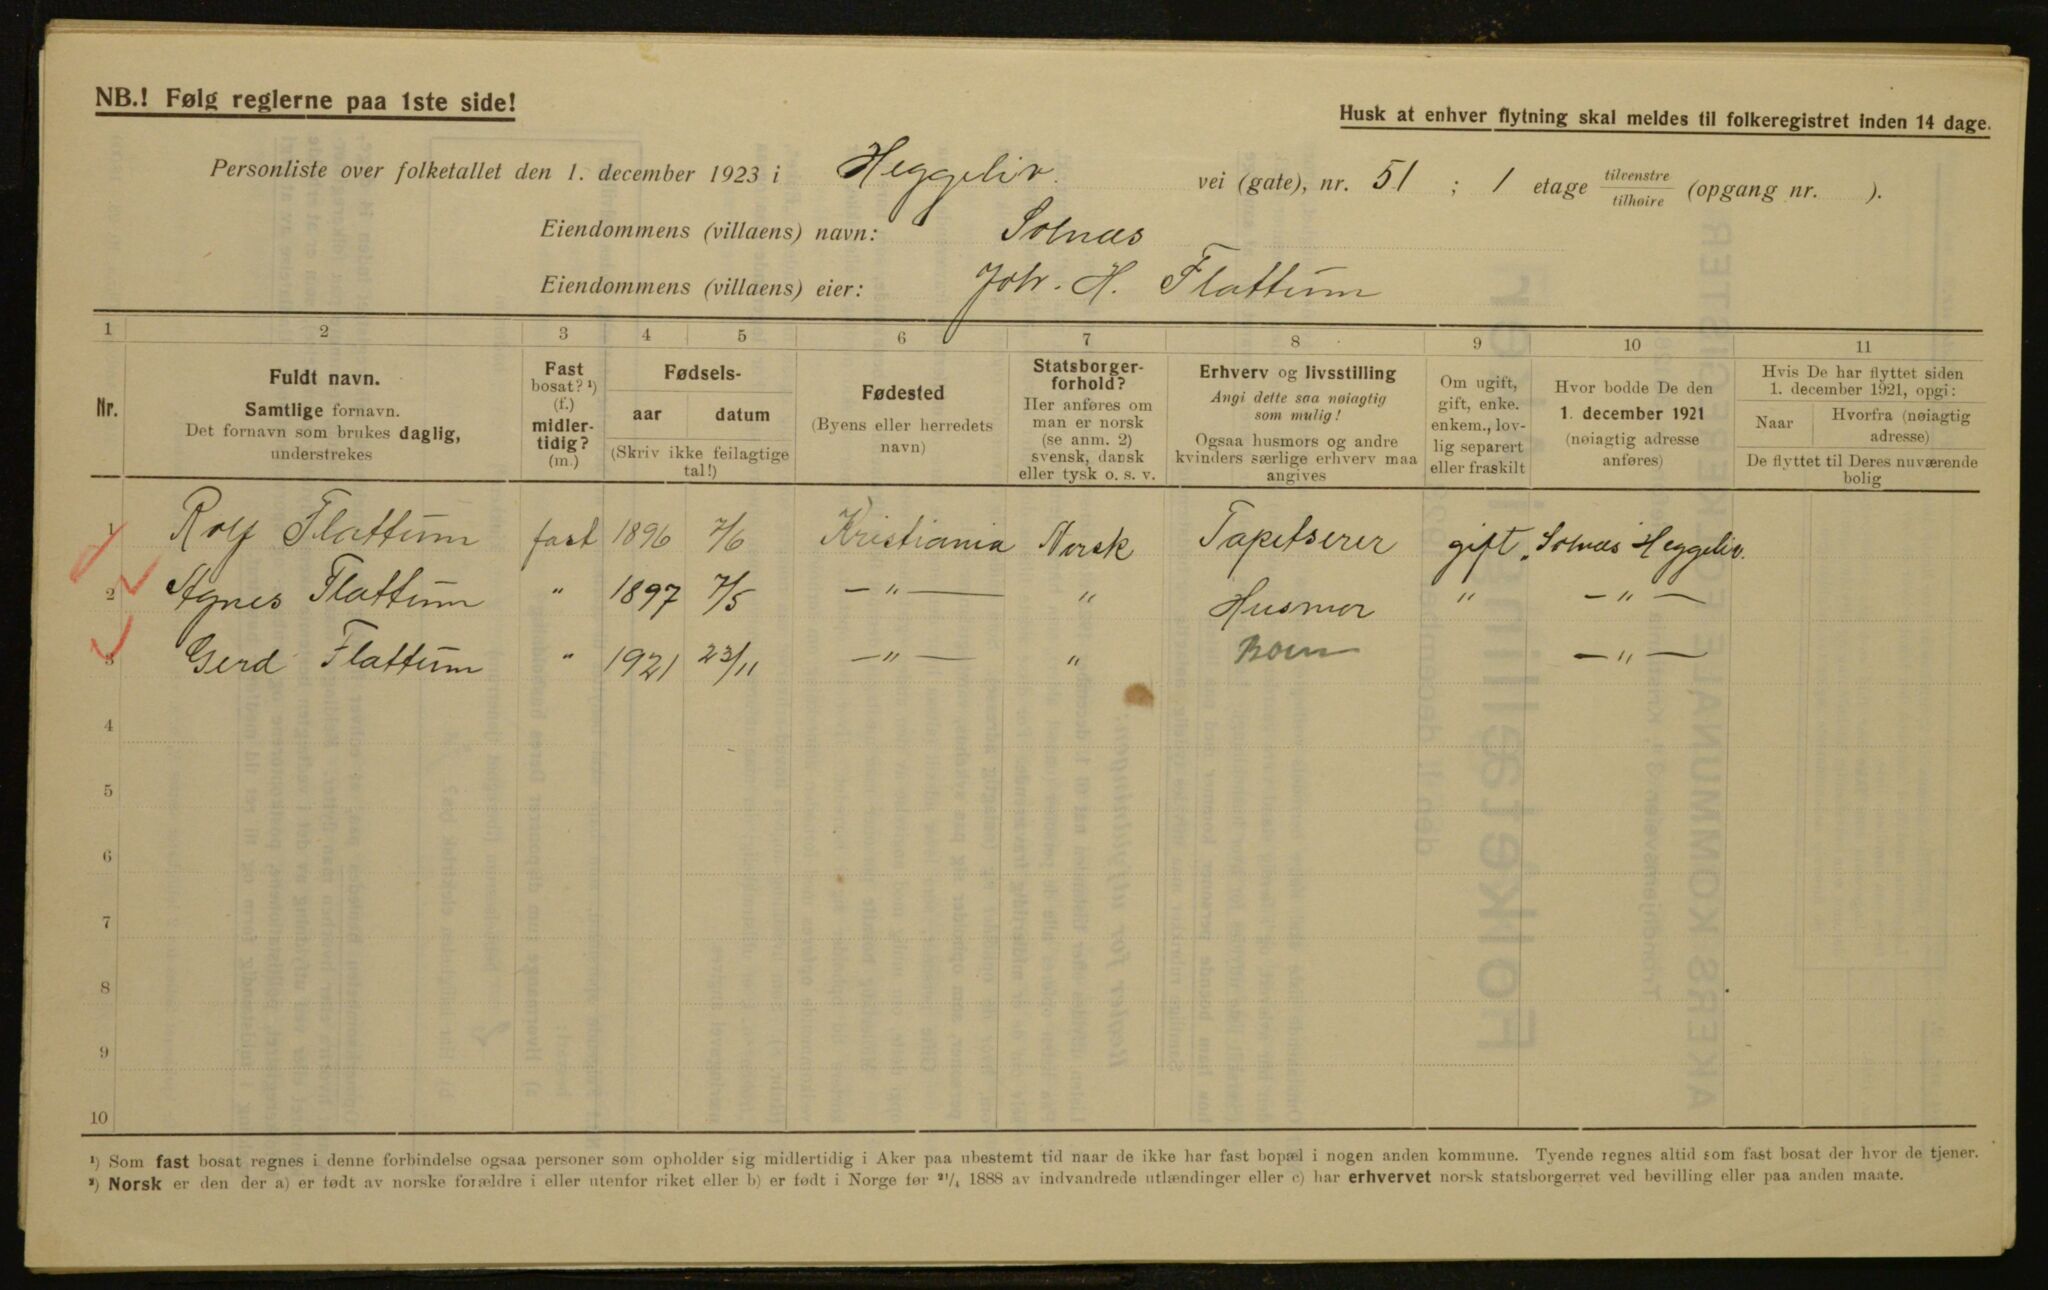 NB.! Følg reglerne paa 1ste side!
Husk at enhver flytning skal meldes til folkeregistret inden 14 dage.
Personliste over folketallet den 1. december 1923 i Heggeliv. vei (gate), nr. 51 ; 1 etage tilvenstre / tilhøire (opgang nr. ).
Eiendommens (villaens) navn: Solnæs
Eiendommens (villaens) eier: Joh. H. Flattum
1 2 3 4 5 6 7 8 9 10 11
Nr.
Fuldt navn.
Samtlige fornavn.
Det fornavn som brukes daglig,
understrekes
Fast
bosat? ¹)
(f.)
midler-
tidig?
(m.)
Fødsels-
aar datum
(Skriv ikke feilagtige
tal!)
Fødested
(Byens eller herredets
navn)
Statsborger-
forhold?
Her anføres om
man er norsk
(se anm. 2)
svensk, dansk
eller tysk o. s. v.
Erhverv og livsstilling
Angi dette saa nøiagtig
som mulig!
Ogsaa husmors og andre
kvinders særlige erhverv maa
angives
Om ugift,
gift, enke.
enkem., lov-
lig separert
eller fraskilt
Hvor bodde De den
1. december 1921
(nøiagtig adresse
anføres)
Hvis De har flyttet siden
1. december 1921, opgi:
Naar
Hvorfra (nøiagtig
adresse)
De flyttet til Deres nuværende
bolig
1 Rolf Flattum fast 1896 7/6 Kristiania Norsk Tapetserer gift „Solnæs Heggeliv.
2 Agnes Flattum " 1897 7/5 — " — " Husmor " — " —
3 Gerd Flattum " 1921 23/11 — " — " Barn — " —
4
5
6
7
8
9
10
¹) Som fast bosat regnes i denne forbindelse ogsaa personer som opholder sig midlertidig i Aker paa ubestemt tid naar de ikke har fast bopæl i nogen anden kommune. Tyende regnes altid som fast bosat der hvor de tjener.
²) Norsk er den der a) er født av norske forældre i eller utenfor riket eller b) er født i Norge før 21/4 1888 av indvandrede utlændinger eller c) har erhvervet norsk statsborgerret ved bevilling eller paa anden maate.